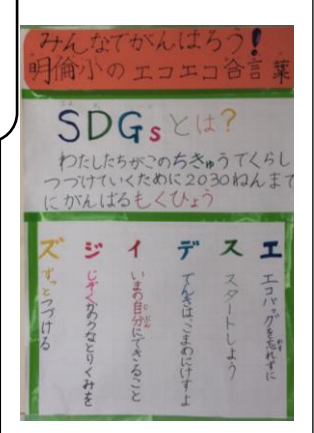 みんなでがんばろう!
明倫小のエコエコ合言葉
SDGsとは?
わたしたちがこのちきゅうでくらし
つづけていくために2030ねんまで
にがんばるもくひょう
エ エコバッグを忘れずに
ス スタートしよう
デ でんきはこまめにけすよ
イ いまの自分にできること
ジ じぞくかのうなとりくみを
ズ ずっとつづける